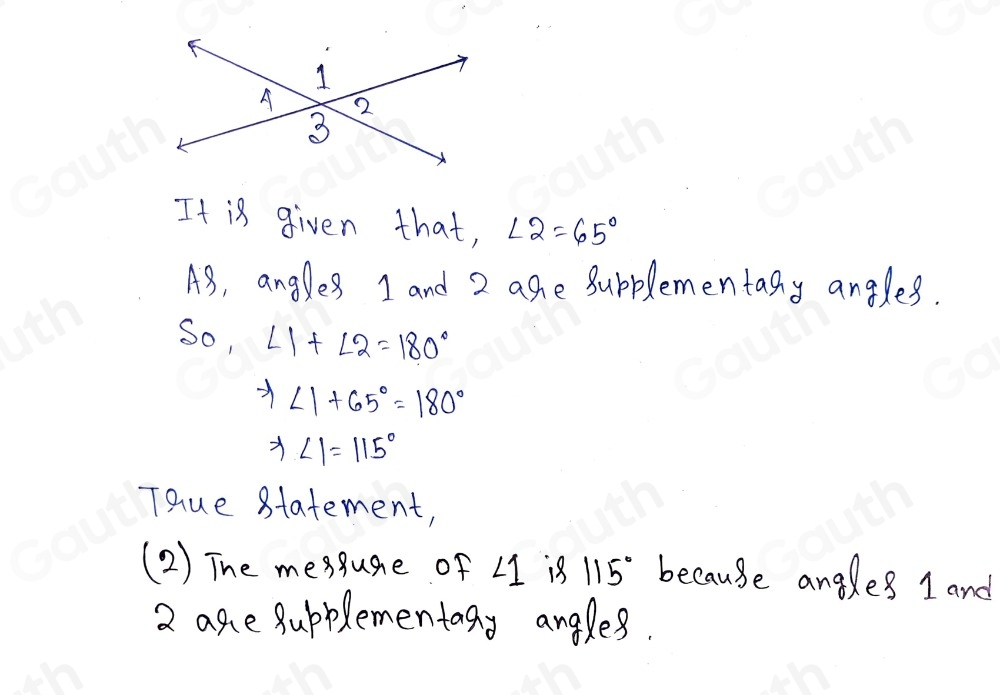 1
4
2
3
It is given that, ∠2=65°
As, angles 1 and 2 are supplementary angles.
So, ∠1+ ∠2=180°
⇒ ∠1+65°=180°
⇒ ∠1=115°
True statement,
(2) The messure of ∠1 is 115° because angles 1 and
2 are supplementary angles.
Gauth